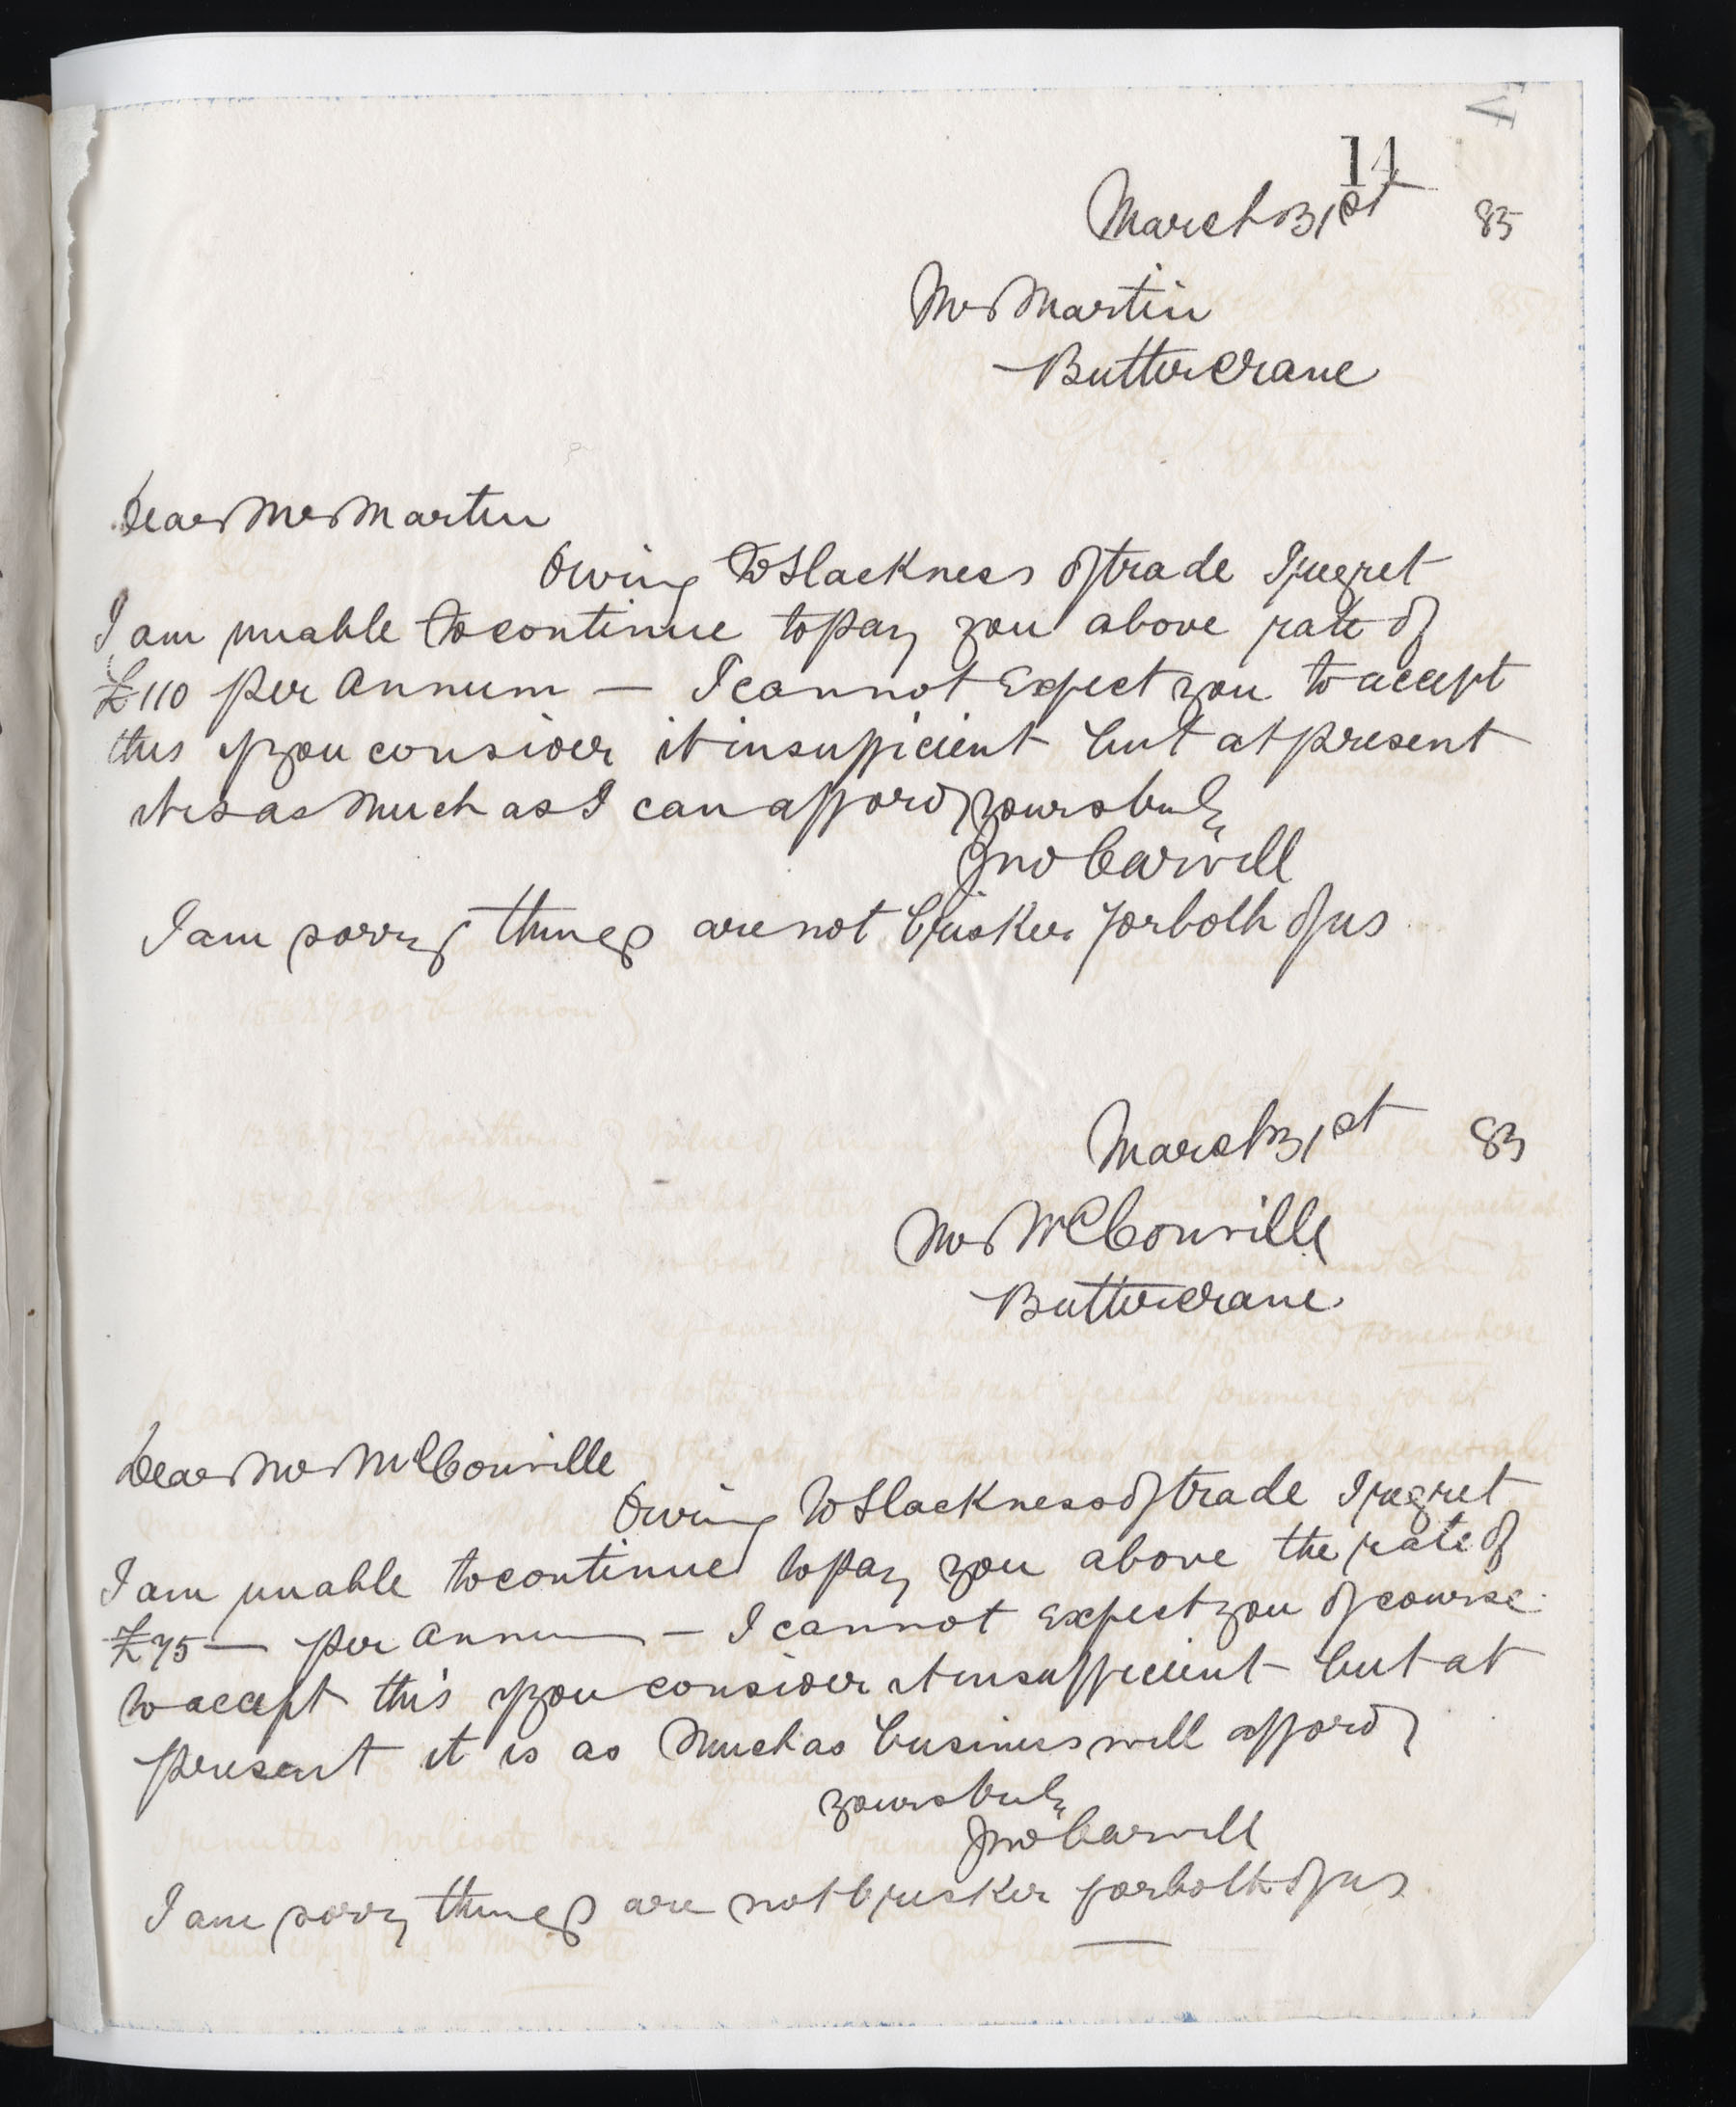 14
March 31st 85
Mr Martin
Buttercrane
Dear Mr Martin
Owing to Slackness of trade I regret
I am unable to continue to pay you above rate of
£110 per Annum — I cannot Expect you to accept
this if you consider it insufficient but at present
it is as much as I can afford yours truly
Jno Carvill
I am sorry things are not brisker for both of us
March 31st 85
Mr McConville
Buttercrane
Dear Mr McConville
Owing to Slackness of trade I regret
I am unable to continue to pay you above the rate of
£75 — per annum — I cannot Expect you of course
to accept this if you consider it insufficient but at
present it is as much as business will afford
yours truly
Jno Carvill
I am sorry things are not brisker for both of us